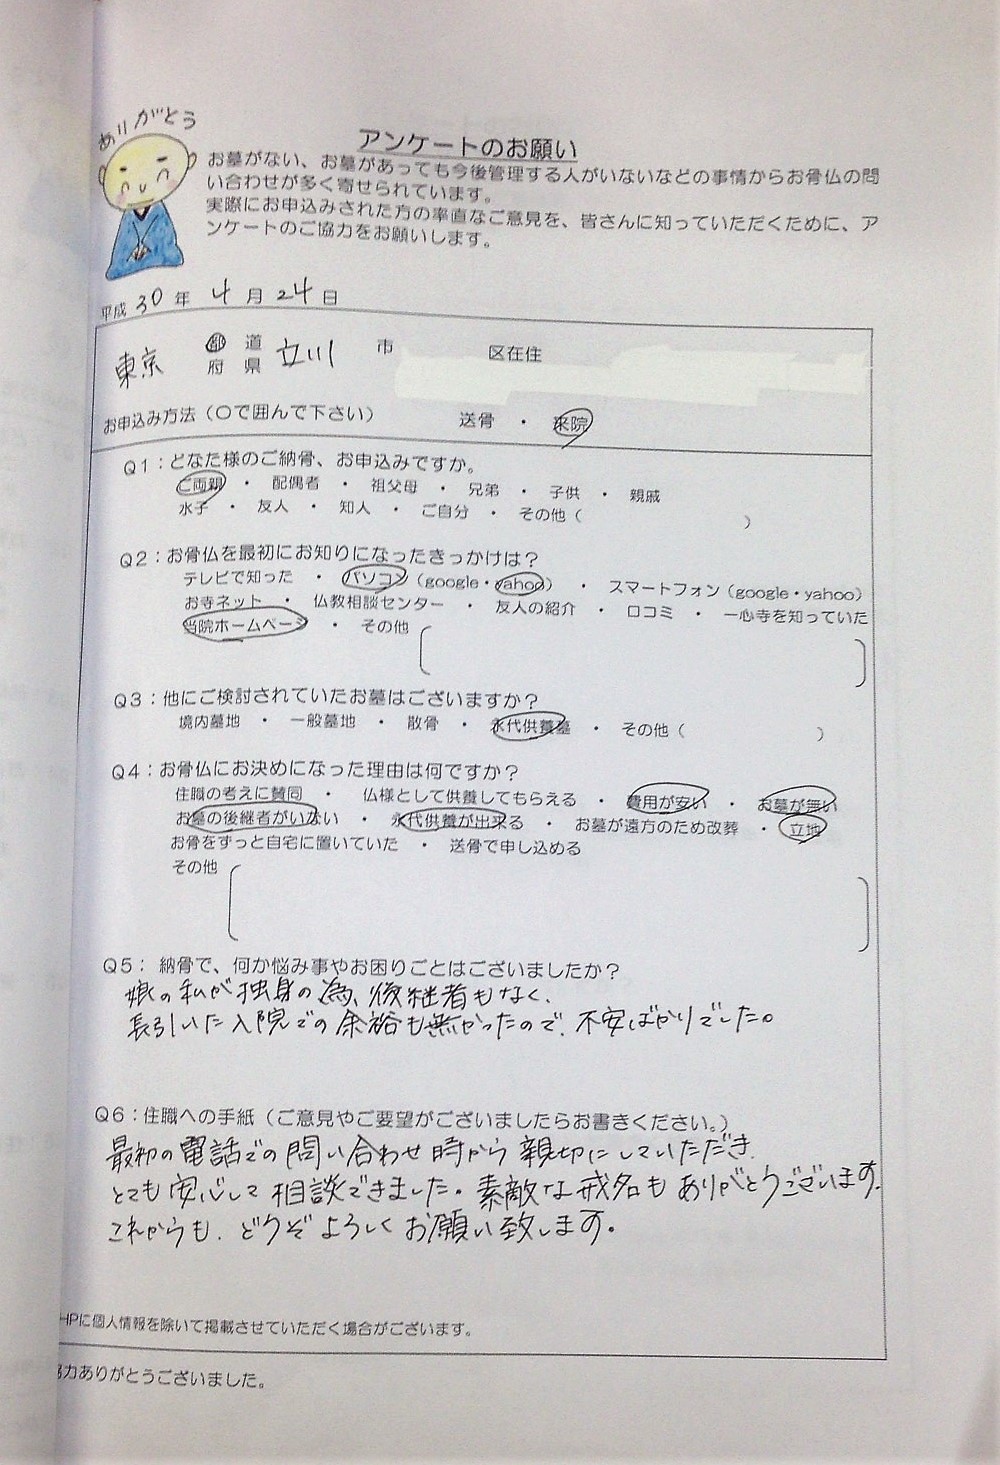 ありがとう
アンケートのお願い
お墓がない、お墓があっても今後管理する人がいないなどの事情からお骨仏の問
い合わせが多く寄せられています。
実際にお申込みされた方の率直なご意見を、皆さんに知っていただくために、ア
ンケートのご協力をお願いします。
平成30年 4月24日
東京 都 道 府 県 立川 市 区在住
お申込み方法（〇で囲んで下さい） 送骨 ・ 来院
Q1：どなた様のご納骨、お申込みですか。
ご両親 ・ 配偶者 ・ 祖父母 ・ 兄弟 ・ 子供 ・ 親戚
水子 ・ 友人 ・ 知人 ・ ご自分 ・ その他（ ）
Q2：お骨仏を最初にお知りになったきっかけは？
テレビで知った ・ パソコン（google・yahoo） ・ スマートフォン（google・yahoo）
お寺ネット ・ 仏教相談センター ・ 友人の紹介 ・ 口コミ ・ 一心寺を知っていた
当院ホームページ ・ その他
Q3：他にご検討されていたお墓はございますか？
境内墓地 ・ 一般墓地 ・ 散骨 ・ 永代供養墓 ・ その他（ ）
Q4：お骨仏にお決めになった理由は何ですか？
住職の考えに賛同 ・ 仏様として供養してもらえる ・ 費用が安い ・ お墓が無い
お墓の後継者がいない ・ 永代供養が出来る ・ お墓が遠方のため改葬 ・ 立地
お骨をずっと自宅に置いていた ・ 送骨で申し込める
その他
Q5： 納骨で、何か悩み事やお困りごとはございましたか？
娘の私が独身の為、後継者もなく、
長引いた入院での余裕も無かったので、不安ばかりでした。
Q6：住職への手紙（ご意見やご要望がございましたらお書きください。）
最初の電話での問い合わせ時から親切にしていただき、
とても安心して相談できました。素敵な戒名もありがとうございます。
これからも、どうぞよろしくお願い致します。
HPに個人情報を除いて掲載させていただく場合がございます。
力ありがとうございました。